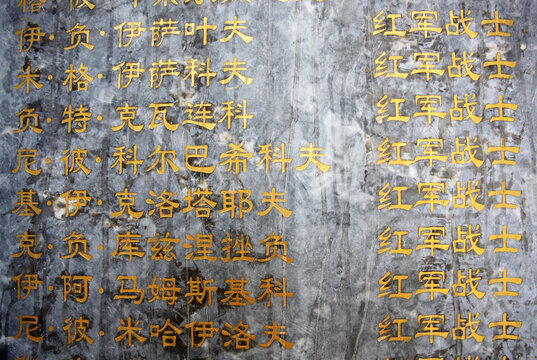 伊·负·伊萨叶夫 红军战士
米·格·伊萨科夫 红军战士
负·特·克瓦连科 红军战士
尼·彼·科尔巴希科夫 红军战士
基·伊·克洛塔耶夫 红军战士
克·负·库兹涅挫负 红军战士
伊·阿·马姆斯基科 红军战士
尼·彼·米哈伊洛夫 红军战士